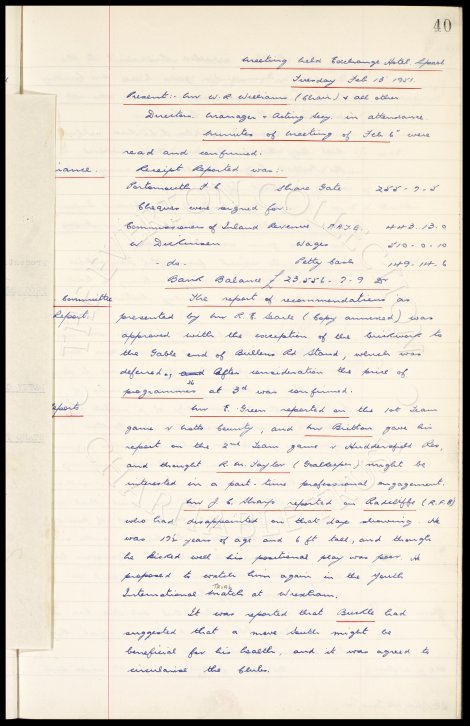 40
Meeting held Exchange Hotel, L'pool
Tuesday Feb 13" 1951.
Present:- Mr W. R. Williams (Chair) & all other
Directors. Manager & Acting Secy. in attendance.
Minutes of Meeting of Feb 6" were
read and confirmed.
inance. Receipt Reported was:-
Portsmouth F C Share Gate 255-7-5
Cheques were signed for:-
Commissioners of Inland Revenue P.A.Y.E. 443.13.0
W Dickinson Wages 510.0.10
- do - Petty Cash 149.14.6
Bank Balance £23,556-7-9 Dr
Committee The report of recommendations as
Report. presented by Mr R. E. Searle (Copy annexed) was
approved with the exception of the brickwork to
the Gable end of Bullens Rd Stand, which was
deferred, and After consideration the price of
programmes at 3d was confirmed.
eports Mr E. Green reported on the 1st Team
game v Notts County, and Mr Britton gave his
report on the 2nd Team game v Huddersfield Res,
and thought R. M. Taylor (Goalkeeper) might be
interested in a part-time professional engagement.
Mr J. C. Sharp reported on Radcliffe (R.F.B)
who had disappointed on that days showing. He
was 17½ years of age and 6 ft tall, and though
he kicked well his positional play was poor. He
proposed to watch him again in the Youth
International TRIAL Match at Wrexham.
It was reported that Buckle had
suggested that a move South might be
beneficial for his health, and it was agreed to
circularise the Clubs.
THE EVERTON COLLECTION
CHARITABLE